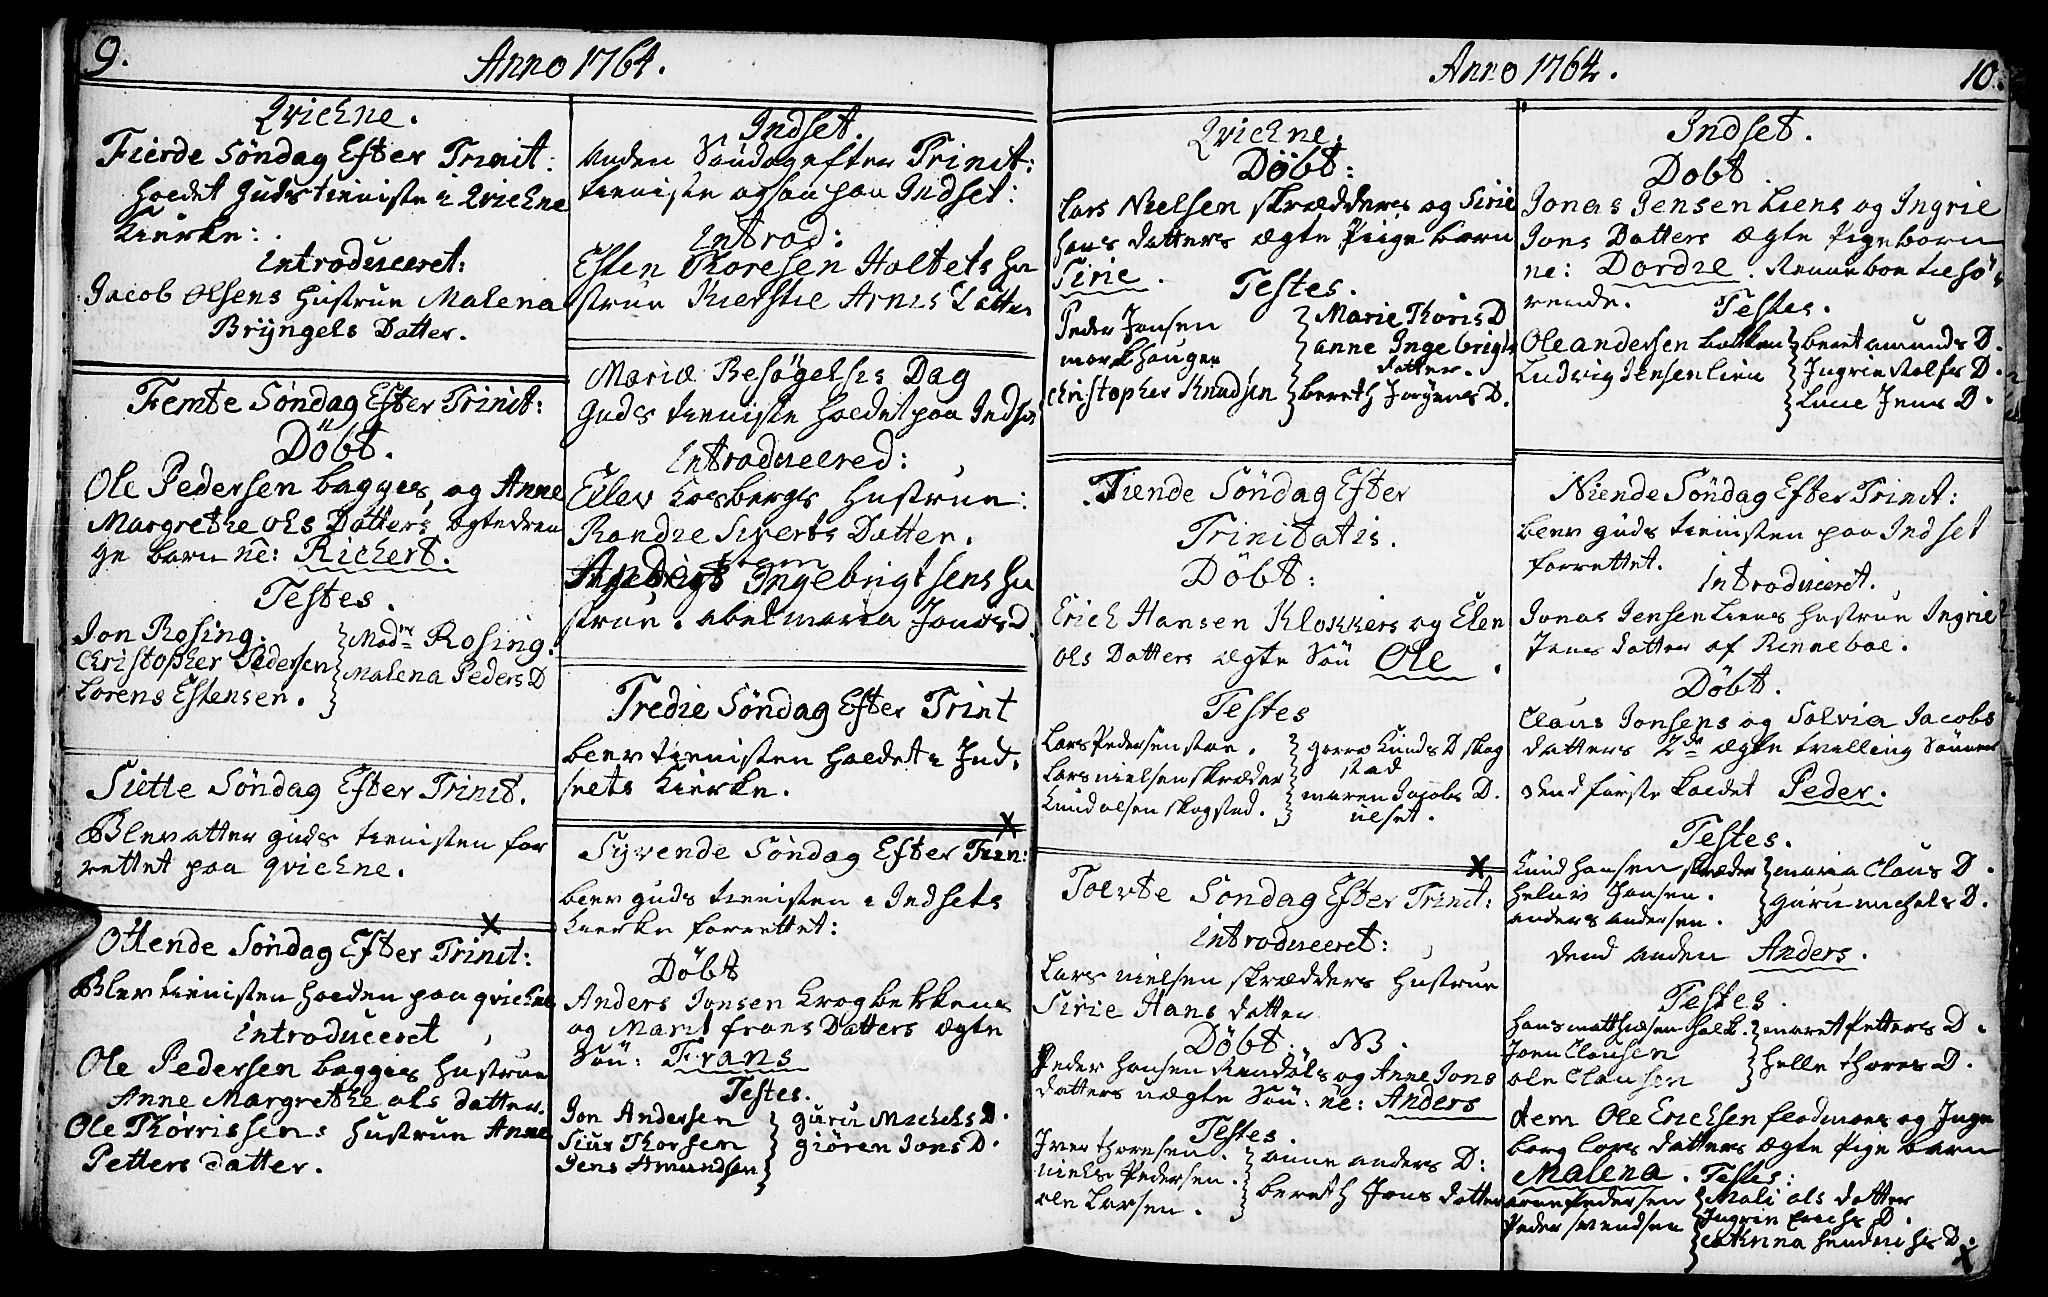 9.
Anno 1764.
Qviekne.
Fierde Søndag Efter Trinit:
holdet Guds tieniste i Qviekne
Kierke:
Introduceret:
Jacob Olsens Hustrue Malena
Bryngels Datter.
Femte Søndag Efter Trinit:
Döbt.
Ole Pedersen bagges, og Anne
Margrethe ols Datters ægte dren
ge barn nê: Richert.
Testes.
Jon Rosing.
Christopher Pedersen
Lorens Estensen.
Mad. Rosing.
Malena Peders D
Siette Søndag Efter Trinit.
Blev atter guds tienisten for
rettet paa qviekne.
Ottende Søndag Efter Trinit:
Blev tienisten holden paa qviekne
Introduceret
Ole Pedersen bagges hustrue
Anne Margrethe ols datter.
Ole Thorrissens hustrue Anne
Petters datter.
Indset.
Anden Søndag efter Trinit:
tieniste ogsaa paa Indset:
Introd:
Esten Thoresen Holtets hu
strue Kierstie Arnes Datter
Mariæ Besøgelses Dag
Guds tieniste holdet paa Indset
Introducered:
Ellev Kosbergs hustrue:
Randie Siverts Datter.
Ingebrigtsens hu
strue. abel maria Jonas D.
Tredie Søndag Efter Trint
blev tienisten holdet i Ind,
sets Kierke.
Syvende Søndag Efter Trin:
blev guds tienisten i Indsets
Kierke forrettet:
Döbt
Anders Jonsen Krogbekkens
og Marit frans Datters ægte
Sön: Frans
Testes.
Jon Andersen
Siur Thorsen
Jens Amundsen
guru Michels D.
giören Jons D.
Anno 1764.
10.
Qviekne.
Döbt:
Lars Nielsen skrædders og Sirie
Hans datters ægte Piige barn
Sirie.
Testes.
Peder Jonsen
morkhaugen
Christopher Knudsen
Marie Thoris D
anne Ingebrigts
datter.
bereth Jørgens D.
Tiende Søndag Efter
Trinitatis.
Döbt:
Erich Hansen Klokkers og Elen
ols Datters ægte Sön Ole.
Testes
Lars Pedersen stoe.
Lars nielsen skræder
Knud olsen skogstad.
gorro Knuds D skog
stad
maren Jacobs D.
ulset.
Tolvte Søndag Efter Trinit:
Introduceret:
Lars nielsen skrædders Hustrue
Sirie Hans datter
Döbt. NB.
Peder hansen Rendöls og Anne Jons
datters uægte Sön: ne: Anders
Testes.
Iver thoresen.
niels Pedersen.
ole Larsen.
anne anders D:
bereth Jons datter
Indset.
Dobt.
Jonas Jensen Liens og Ingrie
Jons Datters ægte Pigebarn
ne: Dordie. Renneboe tilhö,
rende.
Testes.
Ole andersen bakken
Ludvig Jensen lien
beret amunds D.
Ingrie Rolfs D.
Lucie Jens D.
Niende Søndag Efter Trinit:
blev guds tienisten paa Indset
forrettet.
Introduceret.
Jonas Jensen Liens hustrue Ingrie
Jens datter af Renneboe.
Döbt.
Claus Jonsens og Solvia Jacobs
datters 2de ægte tvelling Sönner
dend förste kaldet Peder.
Testes.
Knud hansen skræder
helliv Jonsen.
anders andersen.
maria Claus D.
guru michels D.
dend anden Anders.
Testes.
Hans matthiesen Holck.
Joen Clausen
ole Clausen
maret Petters D.
Helle thores D.
item Ole Erichsen flodmoes og Inge
borg Lars datters ægte Pige barn
Malena. Testes:
arne Pedersen
Peder svendsen
Mali ols datter
Ingrie Erichs D.
Cathrina Hendrichs D.